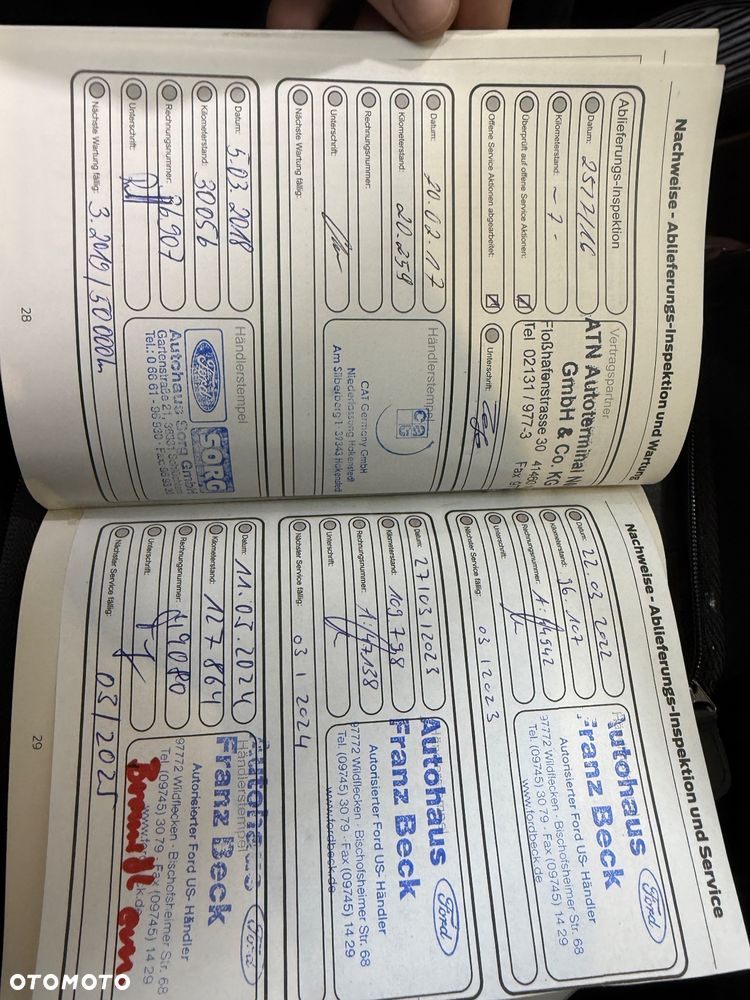 Nachweise - Ablieferungs-Inspektion und Wartung
Ablieferungs-Inspektion
Datum: 25/7/16
Kilometerstand: - 7 -
Überprüft auf offene Service Aktionen:
Offene Service Aktionen abgearbeitet:
Vertragspartner
ATN Autoterminal
GmbH & Co. KG
Floßhafenstrasse 30 4146
Tel 02131 / 977-3 Fax
Unterschrift:
Datum: 20.02.17
Kilometerstand: 20.259
Rechnungsnummer:
Unterschrift:
Nächste Wartung fällig:
Händlerstempel
CAT Germany GmbH
Niederlassung Hakenstedt
Am Silberberg 1, 39343 Hakenstedt
Datum: 5.03.2018
Kilometerstand: 30056
Rechnungsnummer: 26907
Unterschrift:
Nächste Wartung fällig: 3.2019/50000km
Händlerstempel
Ford
SORG
Autohaus Sorg GmbH
Gartenstraße 21,
28
Nachweise - Ablieferungs-Inspektion und Service
Datum: 22.03.2022
Kilometerstand: 96.107
Rechnungsnummer: A:44942
Unterschrift:
Nächster Service fällig: 03/2023
Autohaus
Franz Beck
Ford
Autorisierter Ford US- Händler
97772 Wildflecken · Bischofsheimer Str. 68
Tel. (09745) 30 79 · Fax (09745) 14 29
www.fordbeck.de
Datum: 27/03/2023
Kilometerstand: 109798
Rechnungsnummer: A:47138
Unterschrift:
Nächster Service fällig: 03/2024
Autohaus
Franz Beck
Ford
Autorisierter Ford US- Händler
97772 Wildflecken · Bischofsheimer Str. 68
Tel. (09745) 30 79 · Fax (09745) 14 29
www.fordbeck.de
Datum: 11.03.2024
Kilometerstand: 127864
Rechnungsnummer: A49080
Unterschrift:
Nächster Service fällig: 03/2025
Händlerstempel
Autohaus
Franz Beck
Ford
Autorisierter Ford US- Händler
97772 Wildflecken · Bischofsheimer Str. 68
Tel. (09745) 30 79 · Fax (09745) 14 29
29
OTOMOTO